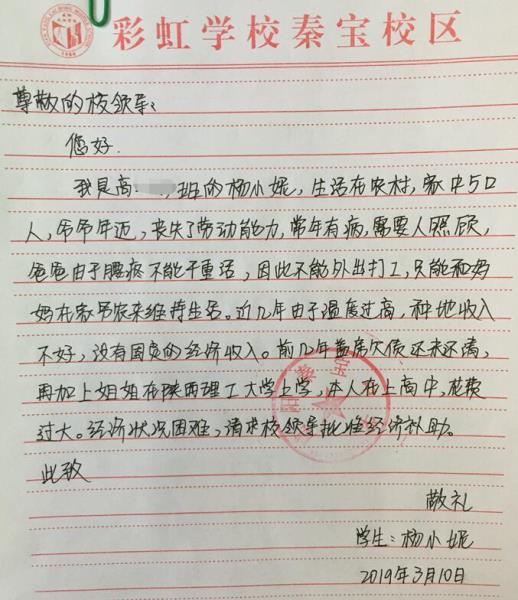 彩虹学校秦宝校区
尊敬的校领导:
您好.
我是高 班的杨小妮,生活在农村,家中5口
人,爷爷年迈,丧失了劳动能力,常年有病,需要人照顾,
爸爸由于腰病不能干重活,因此不能外出打工,只能和妈
妈在家务农来维持生活。近几年由于温度过高,种地收入
不好,没有固定的经济收入。前几年盖房欠债还未还清,
再加上姐姐在陕西理工大学上学,本人在上高中,花费
过大。经济状况困难,请求校领导批准经济补助。
此致
敬礼
学生:杨小妮
2019年3月10日